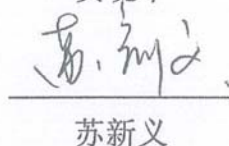 苏新义
苏新义